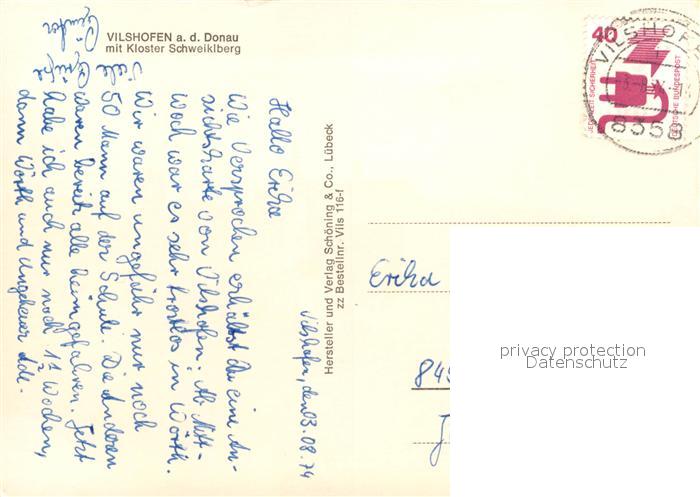 VILSHOFEN a. d. Donau
mit Kloster Schweiklberg
Vilshofen, den 03.08.74
Hallo Erika
Wie Versprochen erhältst du eine An-
sichtskarte von Vilshofen. Ab Mitt-
woch war es sehr trostlos in Wörth.
Wir waren ungefähr nur noch
50 Mann auf der Schule. Die Anderen
waren bereits alle heimgefahren. Jetzt
habe ich auch nur noch 1½ Wochen,
dann Wörth und Ungeheuer ade.
Viele Grüße
Günther
Hersteller und Verlag Schöning & Co., Lübeck
zz Bestellnr. Vils 116-f
40
JEDERZEIT SICHERHEIT
DEUTSCHE BUNDESPOST
VILSHOF
8358
Erika
845
privacy protection
Datenschutz